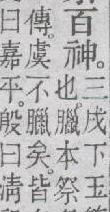 百神。
三戌下玉
也。臘本祭
傳。虞不臘矣。皆
曰嘉平。殷曰清